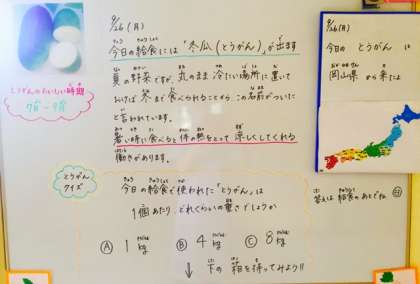 9/26(月)
今日の給食には"冬瓜(とうがん)"が出ます
夏の野菜ですが、丸のまま冷たい場所に置いて
おけば冬まで食べられることからこの名前がついた
と言われています。
暑い時に食べると体の熱をとって涼しくしてくれる
働きがあります。
とうがんのおいしい時期
7月〜9月
とうがん
クイズ
今日の給食で使われた「とうがん」は
1個あたり、どれくらいの重さでしょうか
Ⓐ 1kg Ⓑ 4kg Ⓒ 8kg
↓ 下の箱を持ってみよう!!
答えは給食のあとでね
9/26(月)
今日の とうがん は
岡山県から来たよ